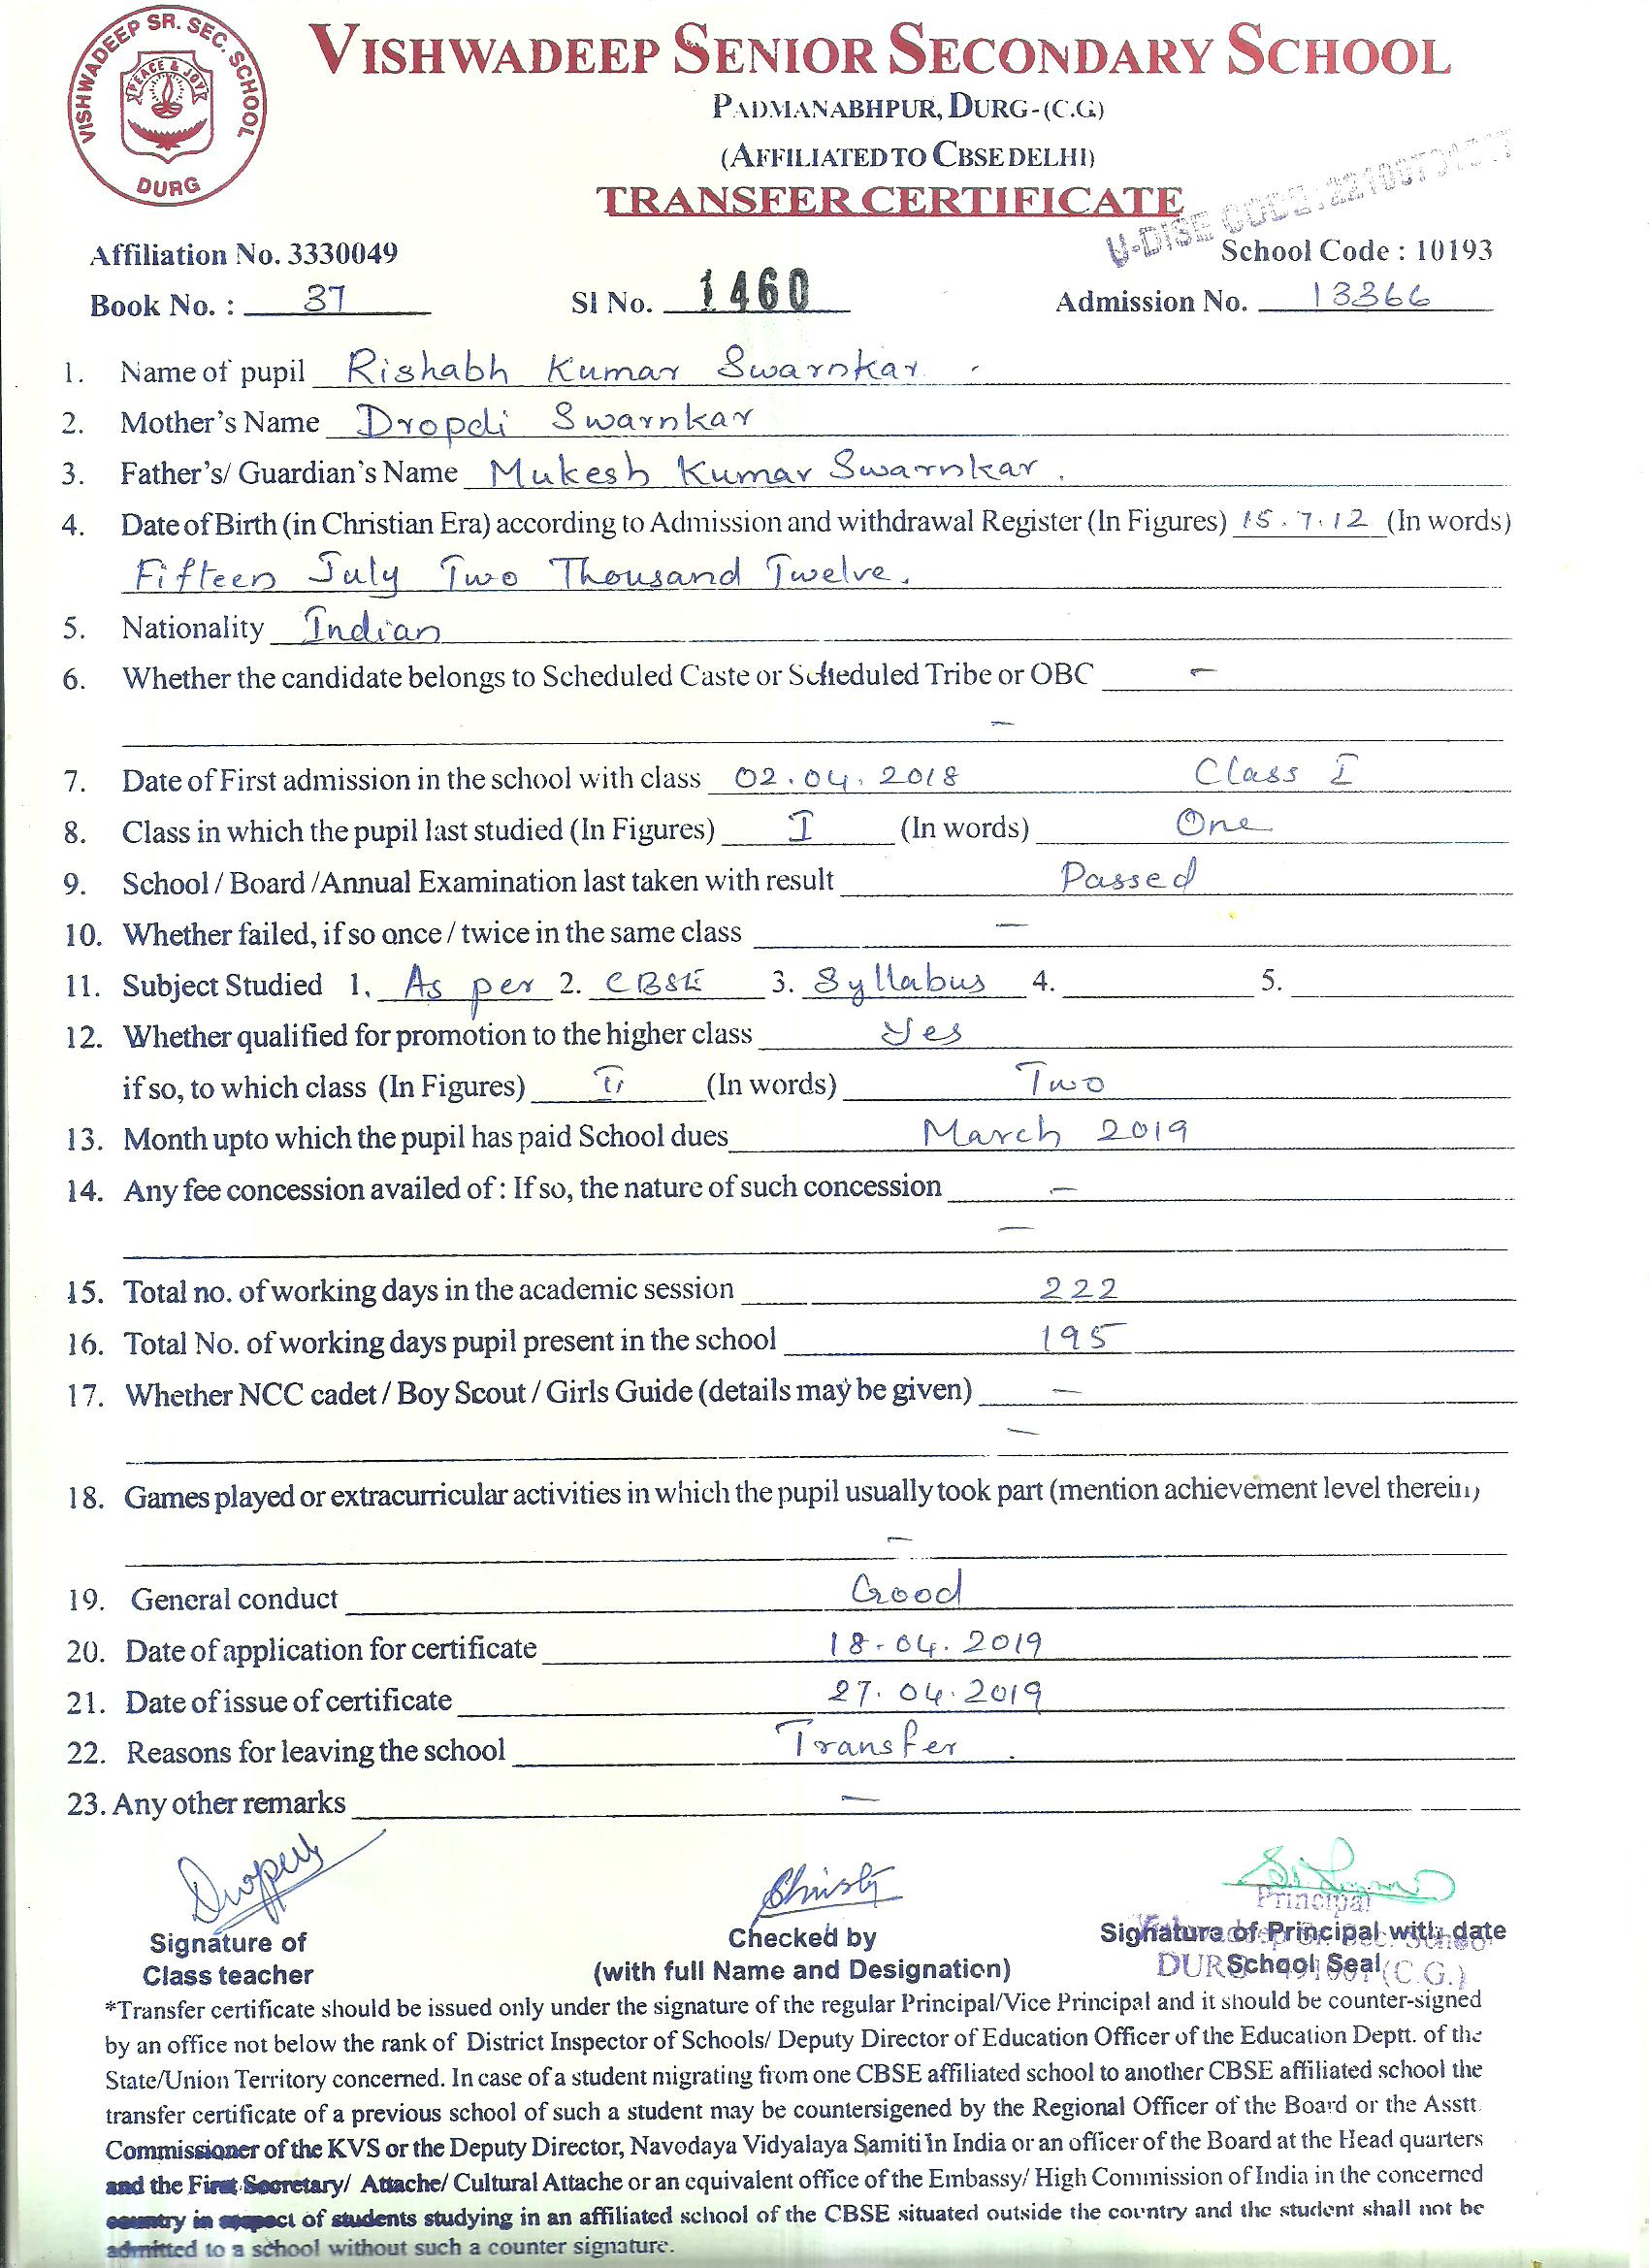 VISHWADEEP SR. SEC. SCHOOL
PEACE & JOY
DURG
VISHWADEEP SENIOR SECONDARY SCHOOL
PADMANABHPUR, DURG-(C.G.)
(AFFILIATED TO CBSE DELHI)
TRANSFER CERTIFICATE
U-DISE CODE:
Affiliation No. 3330049 School Code : 10193
Book No. : 37 Sl No. 1460 Admission No. 13366
1. Name of pupil Rishabh Kumar Swarnkar
2. Mother's Name Dropdi Swarnkar
3. Father's/ Guardian's Name Mukesh Kumar Swarnkar.
4. Date of Birth (in Christian Era) according to Admission and withdrawal Register (In Figures) 15.7.12 (In words)
Fifteen July Two Thousand Twelve.
5. Nationality Indian
6. Whether the candidate belongs to Scheduled Caste or Scheduled Tribe or OBC —
—
7. Date of First admission in the school with class 02.04.2018 Class I
8. Class in which the pupil last studied (In Figures) I (In words) One
9. School / Board /Annual Examination last taken with result Passed
10. Whether failed, if so once / twice in the same class —
11. Subject Studied 1. As per 2. CBSE 3. Syllabus 4. 5.
12. Whether qualified for promotion to the higher class Yes
if so, to which class (In Figures) II (In words) Two
13. Month upto which the pupil has paid School dues March 2019
14. Any fee concession availed of : If so, the nature of such concession —
—
15. Total no. of working days in the academic session 222
16. Total No. of working days pupil present in the school 195
17. Whether NCC cadet / Boy Scout / Girls Guide (details may be given) —
—
18. Games played or extracurricular activities in which the pupil usually took part (mention achievement level therein)
—
19. General conduct Good
20. Date of application for certificate 18-04.2019
21. Date of issue of certificate 27.04.2019
22. Reasons for leaving the school Transfer.
23. Any other remarks —
Christy
Principal
Signature of Checked by Signature of Principal with date
Class teacher (with full Name and Designation) School Seal
DURG (C.G.)
*Transfer certificate should be issued only under the signature of the regular Principal/Vice Principal and it should be counter-signed
by an office not below the rank of District Inspector of Schools/ Deputy Director of Education Officer of the Education Deptt. of the
State/Union Territory concerned. In case of a student migrating from one CBSE affiliated school to another CBSE affiliated school the
transfer certificate of a previous school of such a student may be countersigened by the Regional Officer of the Board or the Asstt.
Commissioner of the KVS or the Deputy Director, Navodaya Vidyalaya Samiti in India or an officer of the Board at the Head quarters
and the First Secretary/ Attache/ Cultural Attache or an equivalent office of the Embassy/ High Commission of India in the concerned
country in respect of students studying in an affiliated school of the CBSE situated outside the country and the student shall not be
admitted to a school without such a counter signature.